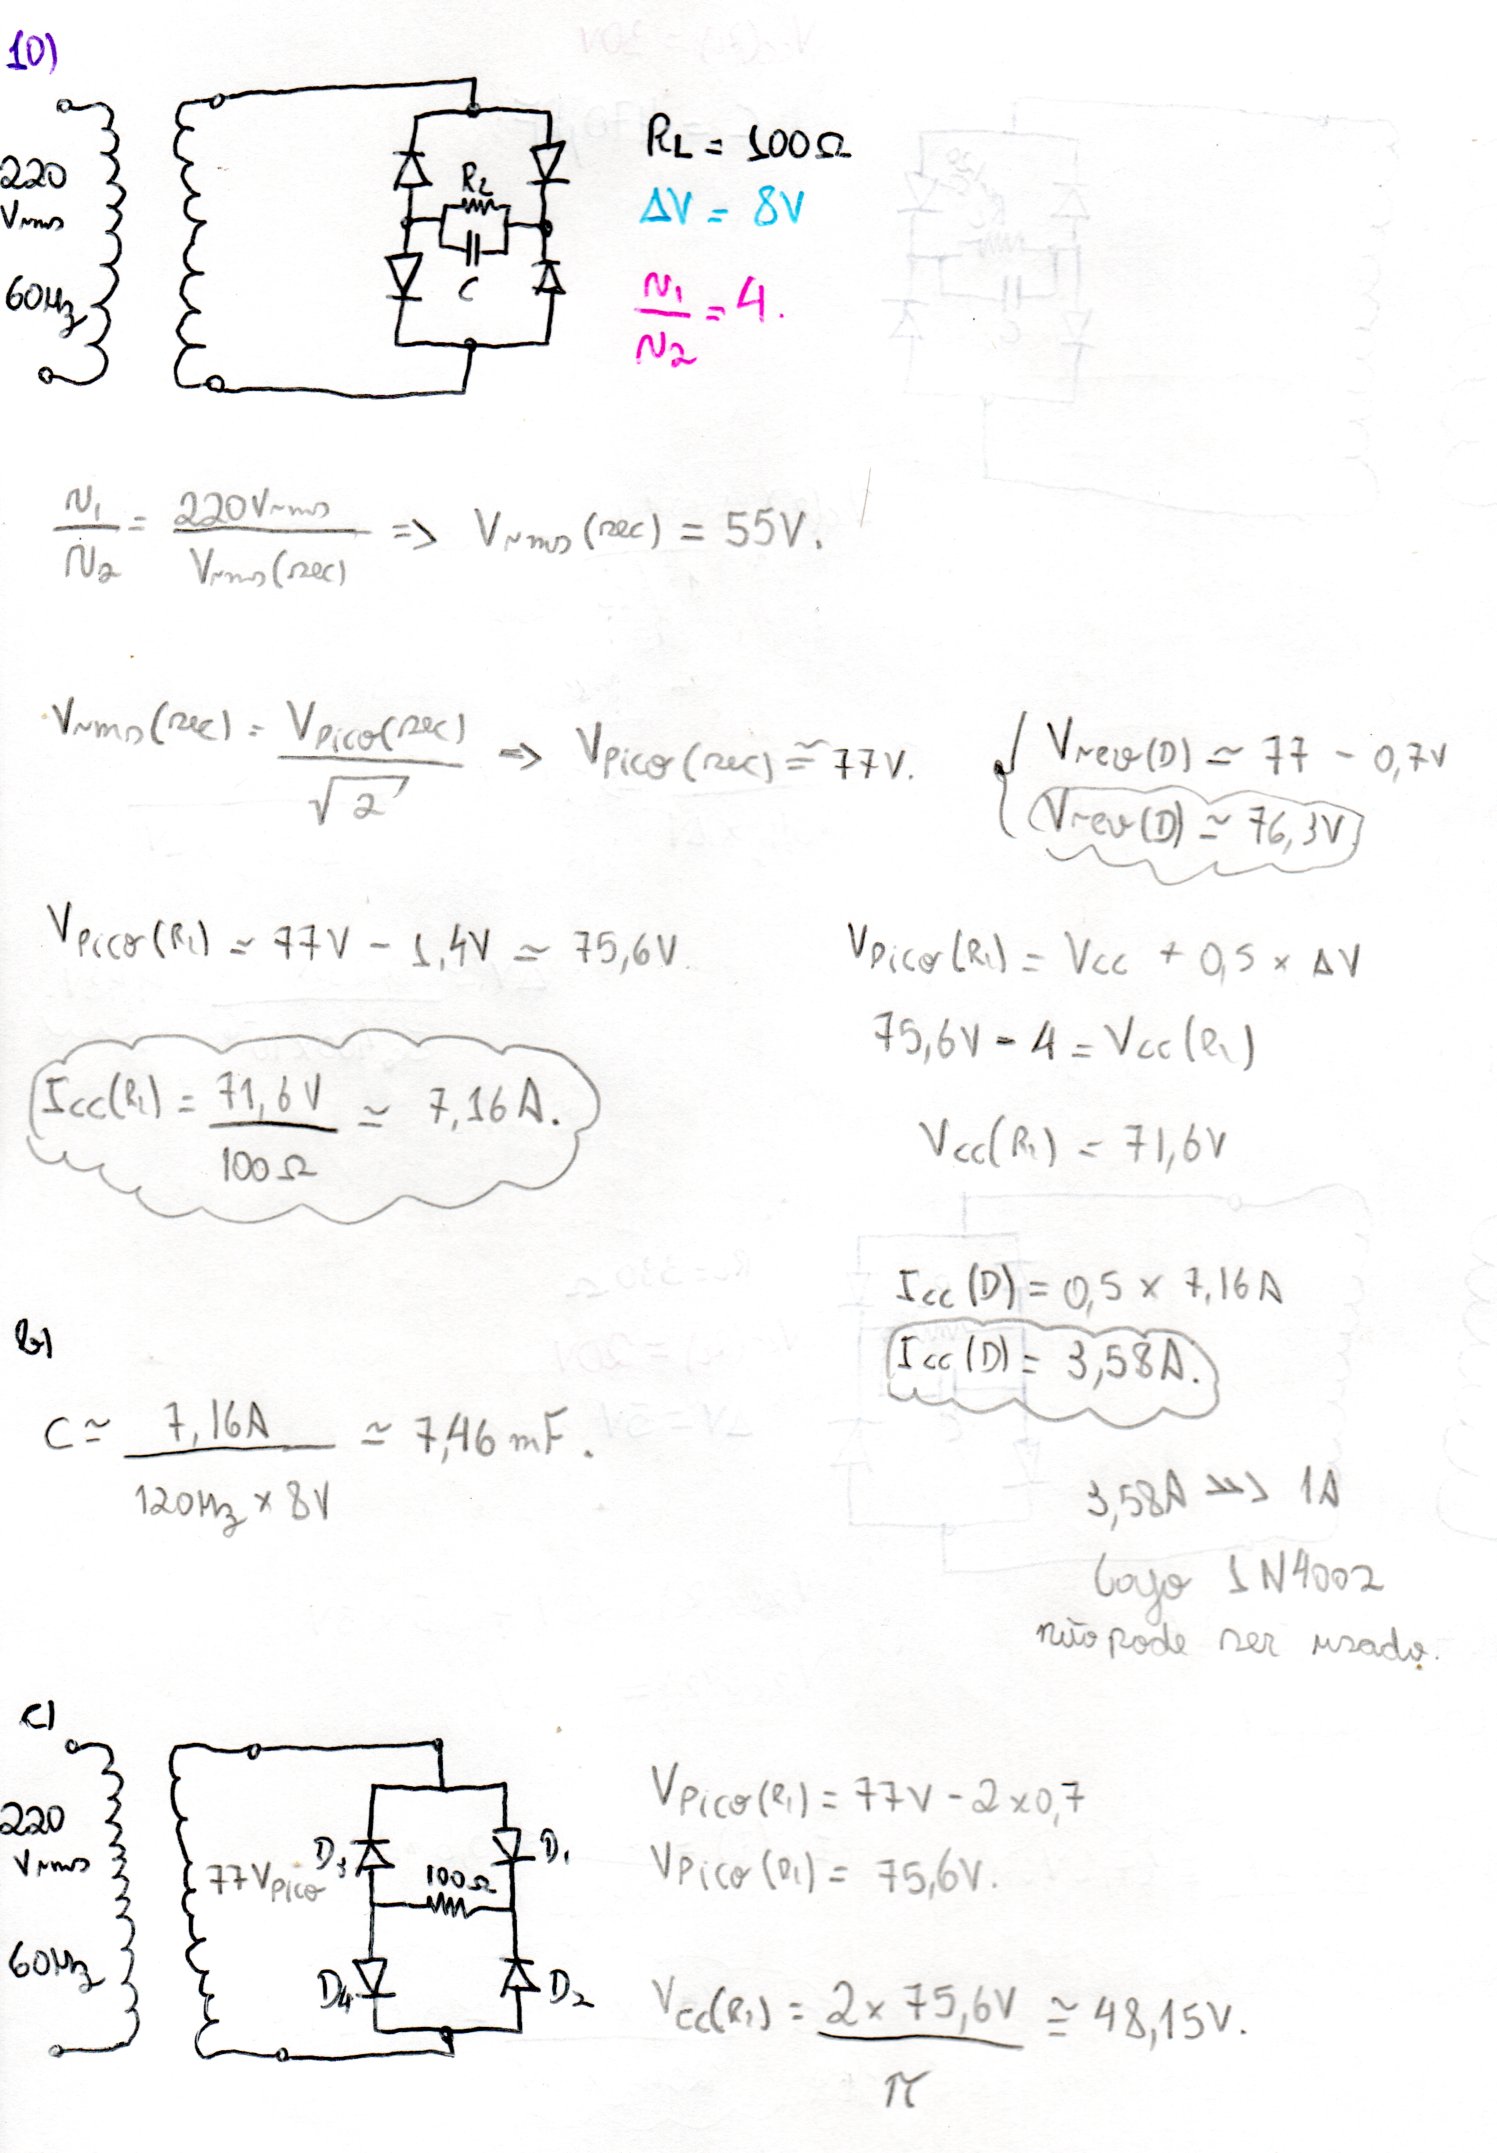 10)
220
Vrms
60Hz
RL
C
RL = 100Ω
ΔV = 8V
N1/N2 = 4.
N1/N2 = 220Vrms/Vrms(sec) => Vrms(sec) = 55V.
Vrms(sec) = Vpico(sec)/√2 => Vpico(sec) ≅ 77V.
Vrev(D) ≃ 77 - 0,7V
Vrev(D) ≃ 76,3V
Vpico(RL) ≃ 77V - 1,4V ≃ 75,6V
Vpico(RL) = Vcc + 0,5 × ΔV
75,6V - 4 = Vcc(RL)
Vcc(RL) = 71,6V
Icc(RL) = 71,6V/100Ω ≃ 7,16A.
Icc(D) = 0,5 × 7,16A
Icc(D) = 3,58A.
b)
C ≃ 7,16A/120Hz × 8V ≃ 7,46mF.
3,58A >>> 1A
logo 1N4002
não pode ser usado.
c)
220
Vrms
60Hz
77Vpico
D3
D1
100Ω
D4
D2
Vpico(RL) = 77V - 2×0,7
Vpico(RL) = 75,6V.
Vcc(RL) = 2 × 75,6V/π ≅ 48,15V.